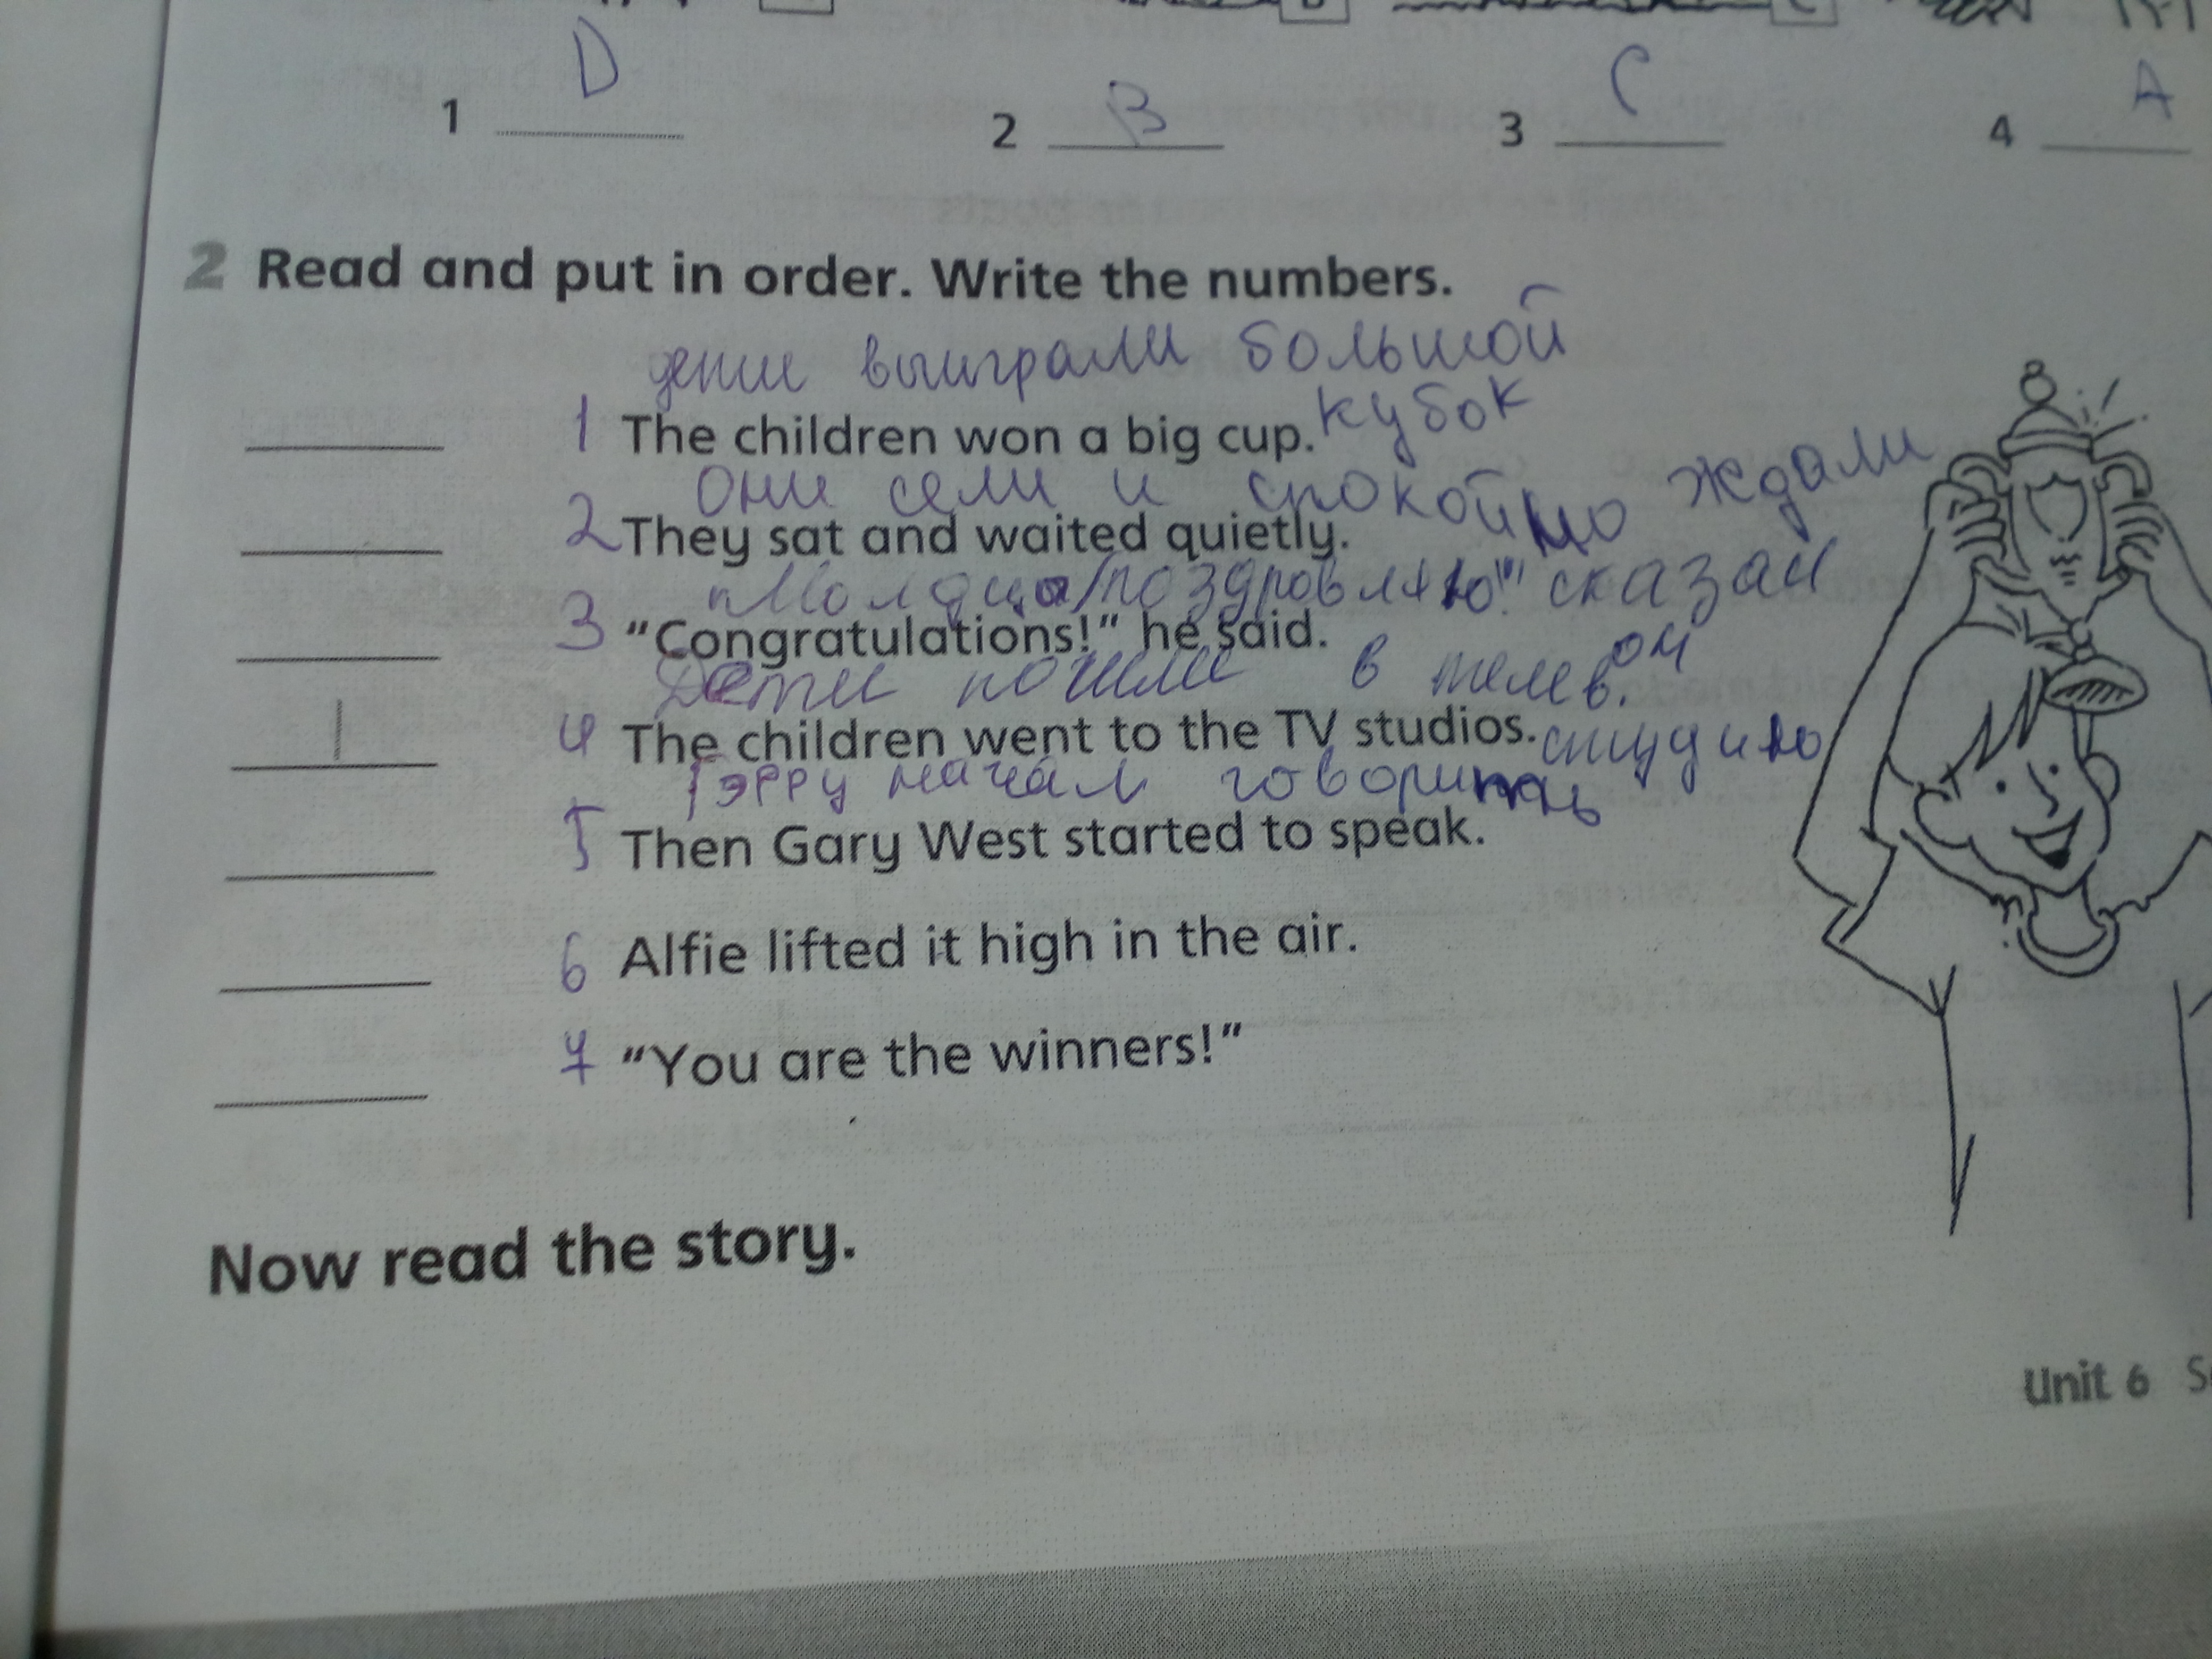 D B C A
1 2 3 4
2 Read and put in order. Write the numbers.
дети выиграли большой
1 The children won a big cup. кубок
Они сели и спокойно ждали
2 They sat and waited quietly.
"Молодцы/поздравляю!" сказал
3 "Congratulations!" he said. он
Дети пошли в телев.
1 4 The children went to the TV studios. студию
Гэрру начал говорить
5 Then Gary West started to speak.
6 Alfie lifted it high in the air.
7 "You are the winners!"
Now read the story.
Unit 6